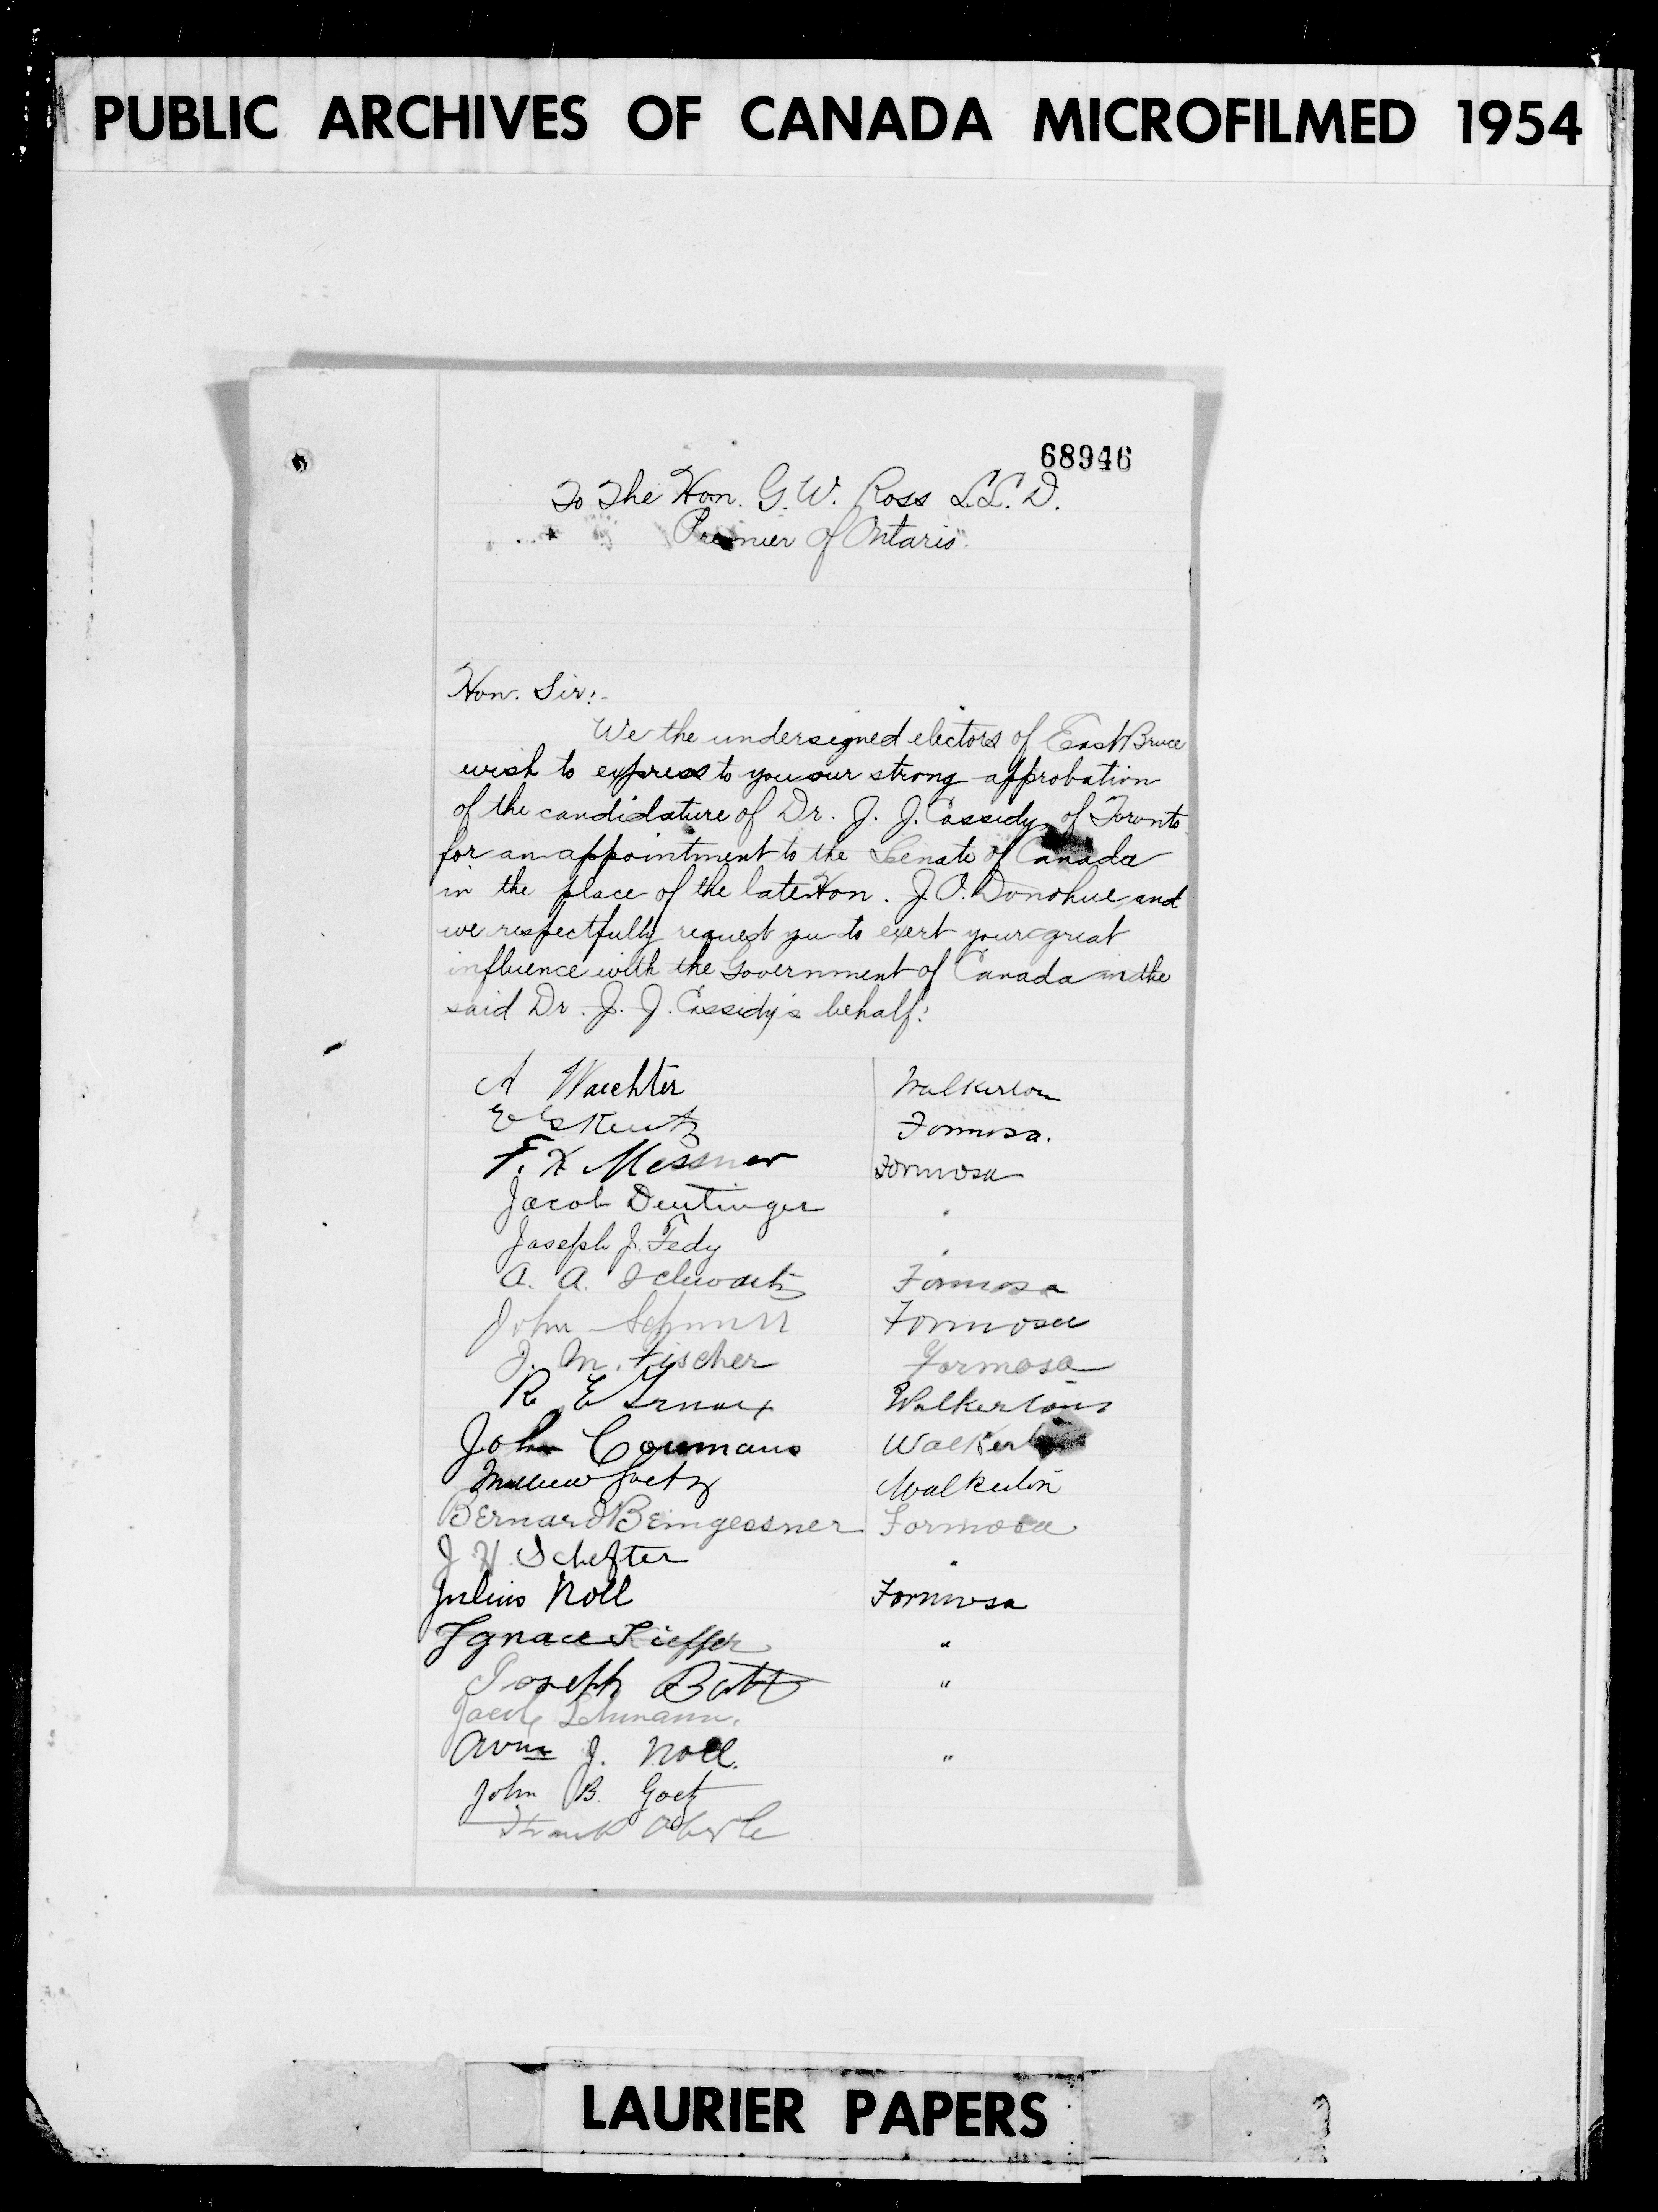 PUBLIC ARCHIVES OF CANADA MICROFILMED 1954
68946
To The Hon. G. W. Ross LL. D.
Premier of Ontario.
Hon. Sir:-
We the undersigned electors of East Bruce
wish to express to you our strong approbation
of the candidature of Dr. J. J. Cassidy of Toronto
for an appointment to the Senate of Canada
in the place of the late Hon. J. O. Donohue and
we respectfully request you to exert your great
influence with the Government of Canada in the
said Dr. J. J. Cassidy's behalf:
A Waechter Walkerton
Kuntz Formosa.
F. X Messner Formosa
Jacob Deutinger "
Joseph J. Fedy "
A. A. Schwartz Formosa
John Schnurr Formosa
J. M. Fischer Formosa
R E Walkerton
John Coumans Walkerton
Goetz Walkerton
Bernard Beingessner Formosa
J. H. Schefter "
Julius Noll Formosa
Ignace Kieffer "
Joseph Batt "
Jacob Lehmann.
J. Noll. "
John B. Goetz
Frank Oberle
LAURIER PAPERS